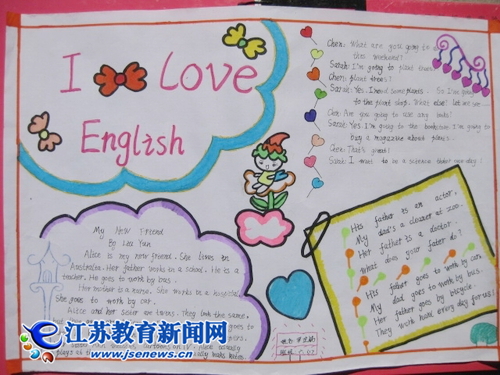 I Love
English
Chen: What are you going to do
this weekend?
Sarah: I'm going to plant trees.
Chen: plant trees?
Sarah: Yes. I need some plants. So I'm going
to the plant shop. What else? let me see
Chen: Are you going to use any tools?
Sarah: Yes I'm going to the bookstore. I'm going to
buy a magazine about plants.
Chen: That's great!
Sarah: I want to be a science teacher one day.
My New Friend
By Liu Yun
Alice is my new friend. She lives in
Australia. Her father works in a school. He is a
teacher. He goes to work by bus.
Her mother is a nurse. She works in a hospital.
She goes to work by car.
Alice and her sister are twins. They look the same,
His father is an actor,
My dad's a cleaner at zoo.
Her father is a doctor.
What does your father do?
His father goes to work by car.
My dad goes to work by bus.
Her father goes by bicycle.
They work hard every day for us!
江苏教育新闻网
www.jsenews.cn